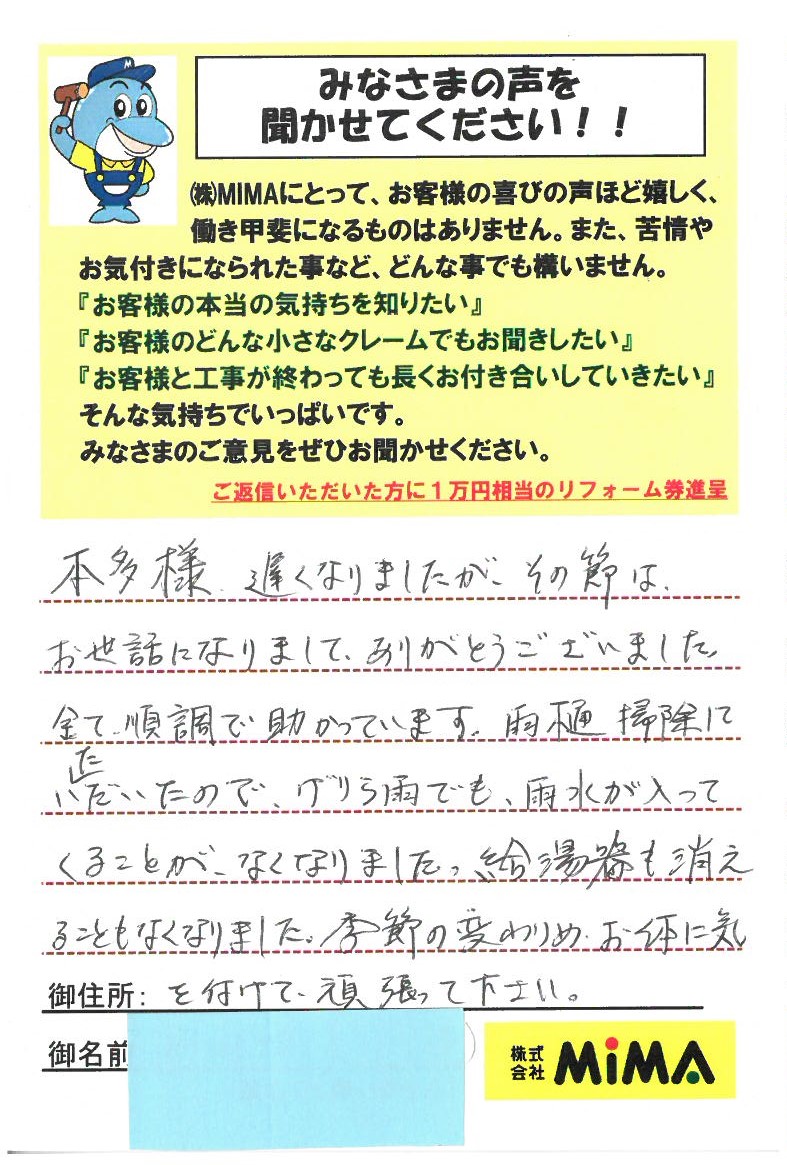 みなさまの声を
聞かせてください！！
㈱MIMAにとって、お客様の喜びの声ほど嬉しく、
働き甲斐になるものはありません。また、苦情や
お気付きになられた事など、どんな事でも構いません。
『お客様の本当の気持ちを知りたい』
『お客様のどんな小さなクレームでもお聞きしたい』
『お客様と工事が終わっても長くお付き合いしていきたい』
そんな気持ちでいっぱいです。
みなさまのご意見をぜひお聞かせください。
ご返信いただいた方に１万円相当のリフォーム券進呈
本多様、遅くなりましたが、その節は、
お世話になりまして、ありがとうございました。
全て、順調で助かっています。雨樋掃除して
いただいたので、ゲリラ雨でも、雨水が入って
くることが、なくなりました。給湯器も消え
ることもなくなりました。季節の変わりめ、お体に気
御住所： を付けて、頑張って下さい。
御名前
株式会社 MiMA